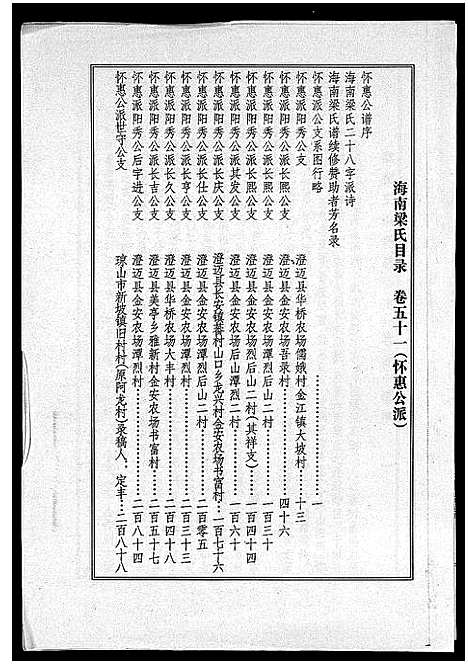 海南梁氏目录 卷五十一(怀惠公派)
怀惠公谱序
海南梁氏二十八字派诗
海南梁氏谱续修赞助者芳名录
怀惠派公支系图行略……………一
怀惠派阳秀公支 澄迈县华桥农场儒娥村金江镇大坡村……十三
怀惠派阳秀公派长熙公支 澄迈县金安农场吾录村……四十六
怀惠派阳秀公派长熙公支 澄迈县金安农场潭烈后山二村……一百三十
怀惠派阳秀公派长熙公支 澄迈县金安农场潭烈后山二村(其祥支)……一百四十四
怀惠派阳秀公派其发公支 澄迈县金安农场潭烈后山二村……一百六十
怀惠派阳秀公派长庆公支 澄迈县长安镇 村山口乡龙兴村金安农场书富村……一百七十六
怀惠派阳秀公派长仕公支 澄迈县金安农场潭烈后山二村……二百零五
怀惠派阳秀公派长亨公支 澄迈县金安农场潭烈村……二百三十三
怀惠派阳秀公派长久公支 澄迈县华桥农场大丰村……二百四十八
怀惠派阳秀公派长吉公支 澄迈县美亭乡雅新村金安农场书富村……二百五十七
怀惠派阳秀公后字进公支 澄迈县金安农场潭烈村……二百八十四
怀惠公派世守公支 琼山市新坡镇旧村村(原阿龙村)录稿人、定丰……二百八十八